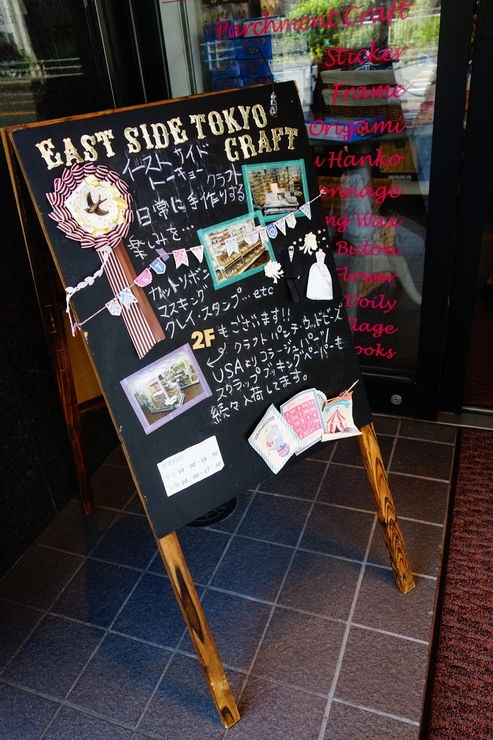 EAST SIDE TOKYO
CRAFT
イースト サイド
トーキョー クラフト
日常に手作りする
楽しみを…
カットリボン
マスキング
クレイ・スタンプ… etc
2F もございます!!
クラフト パンチ・ウッドビーズ
USAよりコラージュペーパー
スクラップブッキングペーパーも
続々入荷してます。
Parchment Craft
Sticker
Frame
Origami
Hanko
Wax
Buton
Flower
Doily